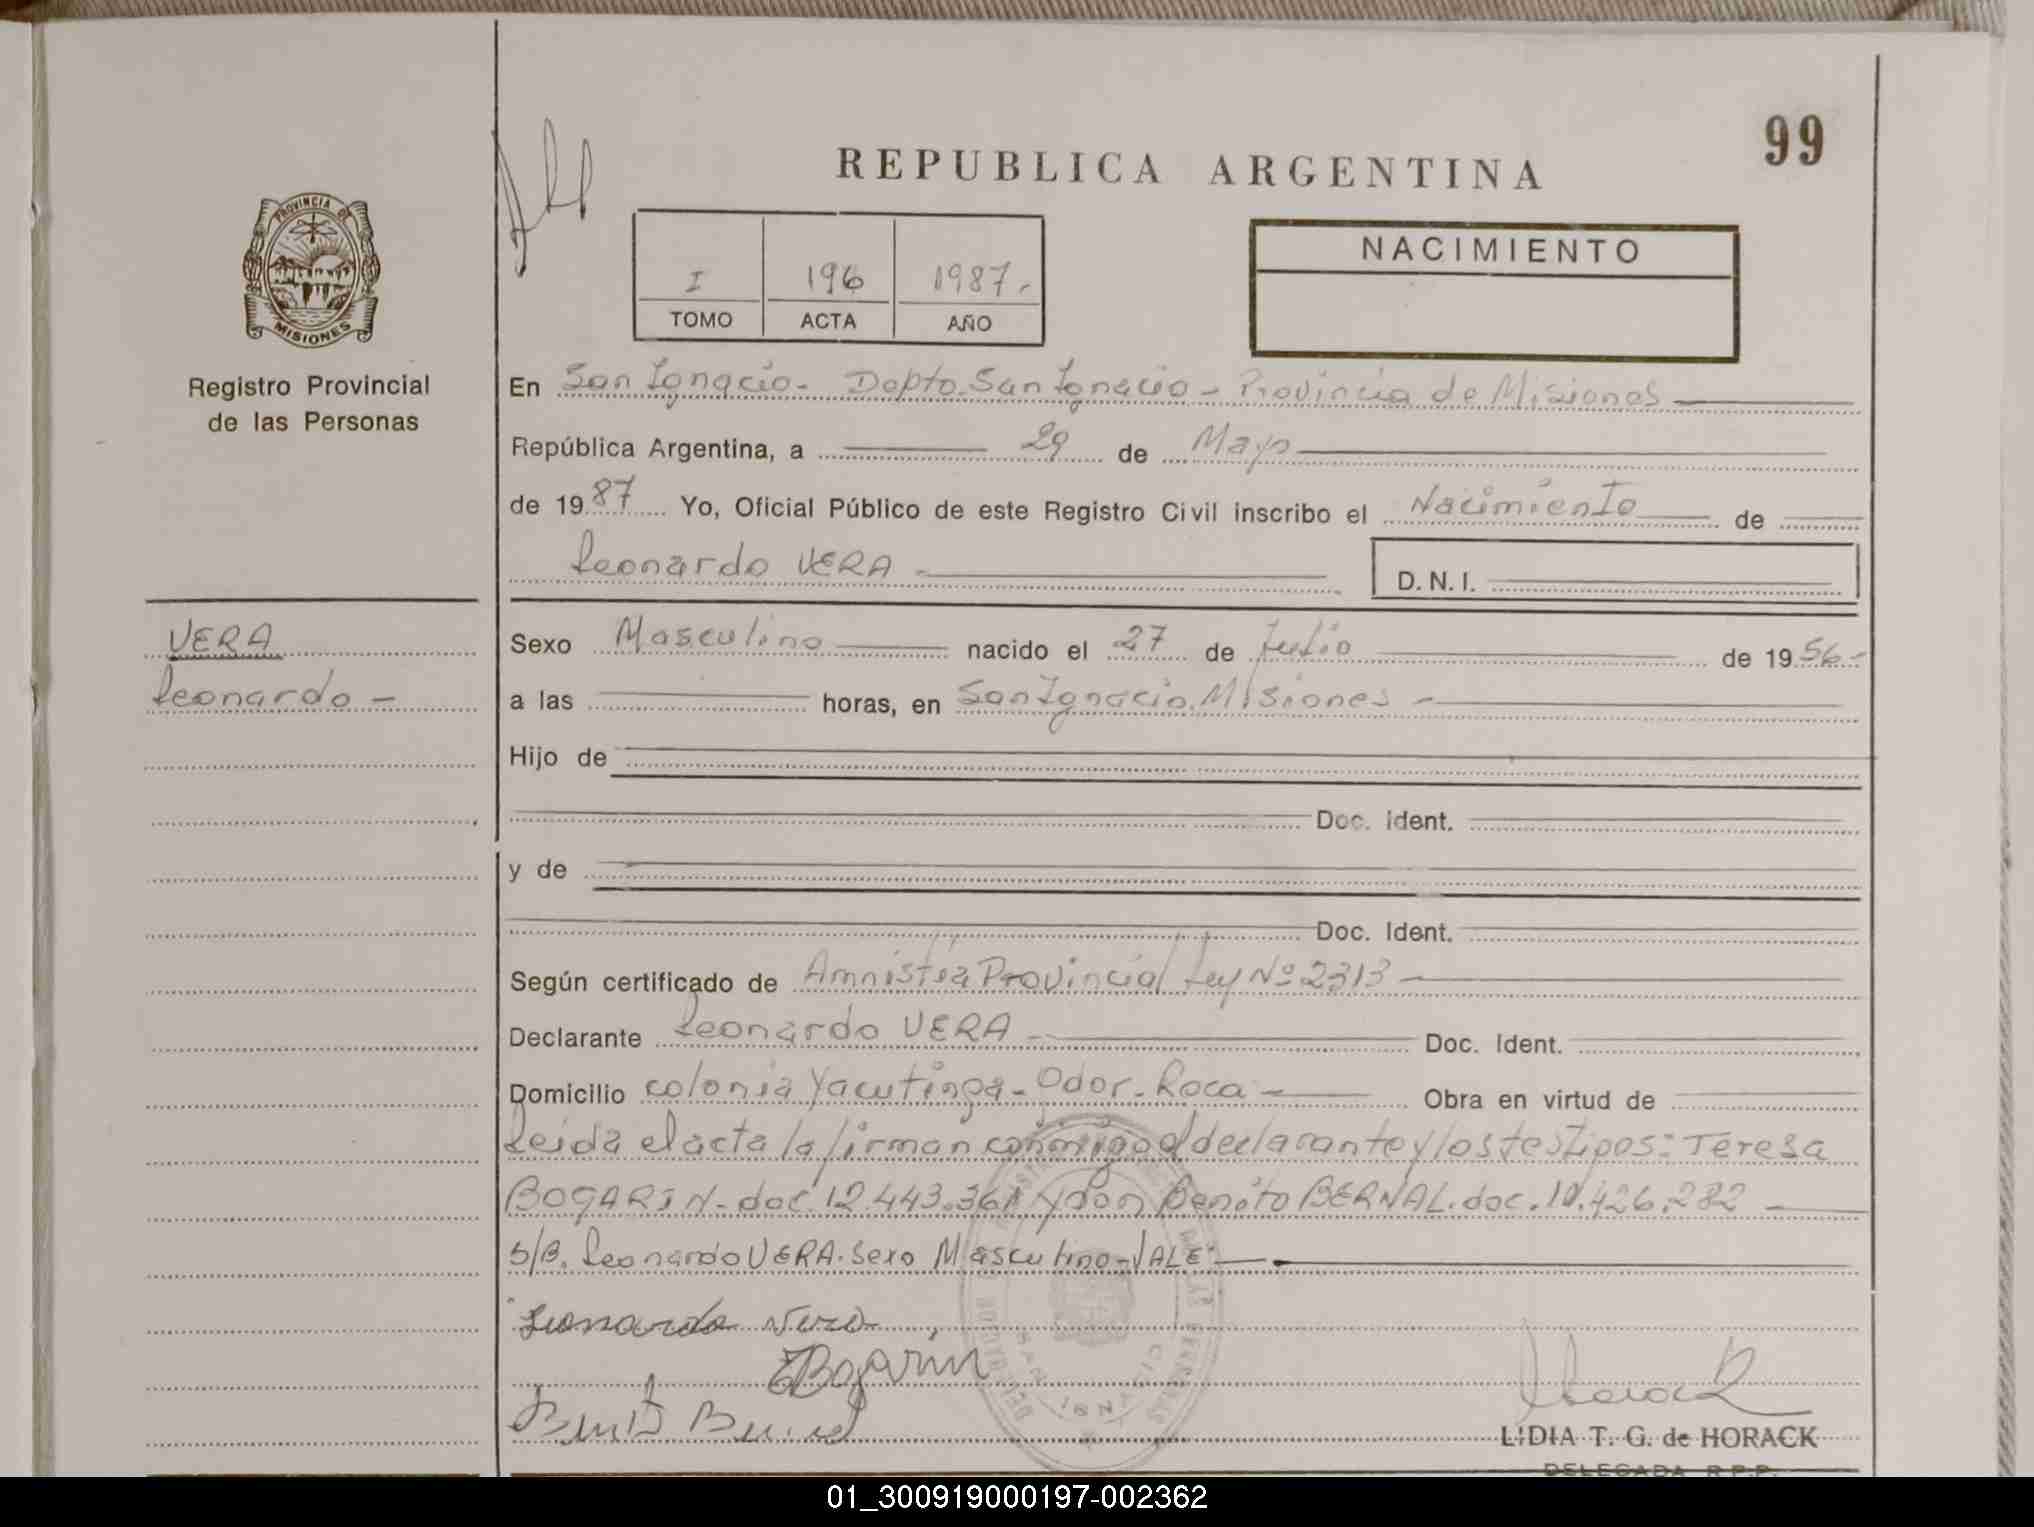 99
REPUBLICA ARGENTINA
PROVINCIA DE
MISIONES
Registro Provincial
de las Personas
NACIMIENTO
I 196 1987.-
TOMO ACTA AÑO
En San Ignacio - Dopto. San Ignacio - Provincia de Misiones
República Argentina, a 29 de Mayo
de 19 87 Yo, Oficial Público de este Registro Civil inscribo el Nacimiento de
Leonardo VERA - D. N. I.
VERA
Leonardo -
Sexo Masculino nacido el 27 de Julio de 19 56-
a las horas, en San Ignacio. Misiones -
Hijo de
Doc. Ident.
y de
Doc. Ident.
Según certificado de Amnistía Provincial Ley Nº 2313 -
Declarante Leonardo VERA - Doc. Ident.
Domicilio colonia Yacutinga - Gdor. Roca - Obra en virtud de
Leida el acta la firman conmigo el declarante y los testigos: Teresa
BOGARIN - doc. 12.443.361 y don Benito BERNAL. doc. 10.426.282
S/B. Leonardo VERA. Sexo Masculino - VALE -
Leonardo Vera
Bogarin
Benito Bernal
LIDIA T. G. de HORACK
DELEGADA R.P.P.
01_300919000197-002362